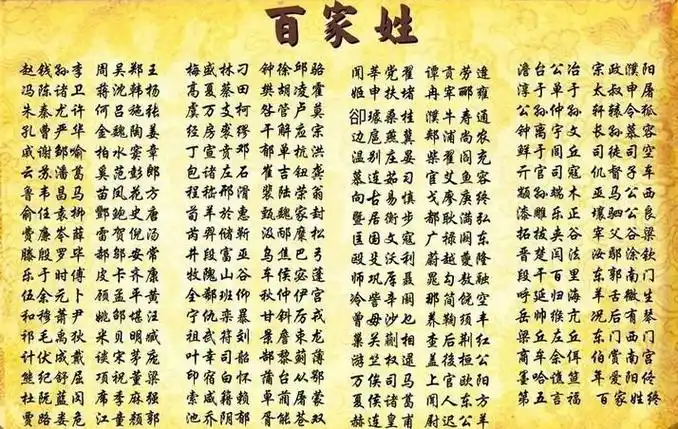 百家姓
赵钱孙李 周吴郑王
冯陈褚卫 蒋沈韩杨
朱秦尤许 何吕施张
孔曹严华 金魏陶姜
戚谢邹喻 柏水窦章
云苏潘葛 奚范彭郎
鲁韦昌马 苗凤花方
俞任袁柳 酆鲍史唐
费廉岑薛 雷贺倪汤
滕殷罗毕 郝邬安常
乐于时傅 皮卞齐康
伍余元卜 顾孟平黄
和穆萧尹 姚邵湛汪
祁毛禹狄 米贝明臧
计伏成戴 谈宋茅庞
熊纪舒屈 项祝董梁
杜阮蓝闵 席季麻强
贾路娄危 江童颜郭
梅盛林刁 钟徐邱骆
高夏蔡田 樊胡凌霍
虞万支柯 昝管卢莫
经房裘缪 干解应宗
丁宣贲邓 郁单杭洪
包诸左石 崔吉钮龚
程嵇邢滑 裴陆荣翁
荀羊於惠 甄魏家封
芮羿储靳 汲邴糜松
井段富巫 乌焦巴弓
牧隗山谷 车侯宓蓬
全郗班仰 秋仲伊宫
宁仇栾暴 甘钭厉戎
祖武符刘 景詹束龙
叶幸司韶 郜黎蓟薄
印宿白怀 蒲邰从鄂
索咸籍赖 卓蔺屠蒙
池乔阴郁 胥能苍双
闻莘党翟 谭贡劳逄
姬申扶堵 冉宰郦雍
郤璩桑桂 濮牛寿通
边扈燕冀 郏浦尚农
温别庄晏 柴瞿阎充
慕连茹习 宦艾鱼容
向古易慎 戈廖庾终
暨居衡步 都耿满弘
匡国文寇 广禄阙东
殴殳沃利 蔚越夔隆
师巩厍聂 晁勾敖融
冷訾辛阚 那简饶空
曾毋沙乜 养鞠须丰
巢关蒯相 查后荆红
游竺权逯 盖益桓公
万俟司马 上官欧阳
夏侯诸葛 闻人东方
赫连皇甫 尉迟公羊
澹台公冶 宗政濮阳
淳于单于 太叔申屠
公孙仲孙 轩辕令狐
钟离宇文 长孙慕容
鲜于闾丘 司徒司空
亓官司寇 仉督子车
颛孙端木 巫马公西
漆雕乐正 壤驷公良
拓跋夹谷 宰父谷梁
晋楚闫法 汝鄢涂钦
段干百里 东郭南门
呼延归海 羊舌微生
岳帅缑亢 况后有琴
梁丘左丘 东门西门
商牟佘佴 伯赏南宫
墨哈谯笪 年爱阳佟
第五言福 百家姓终